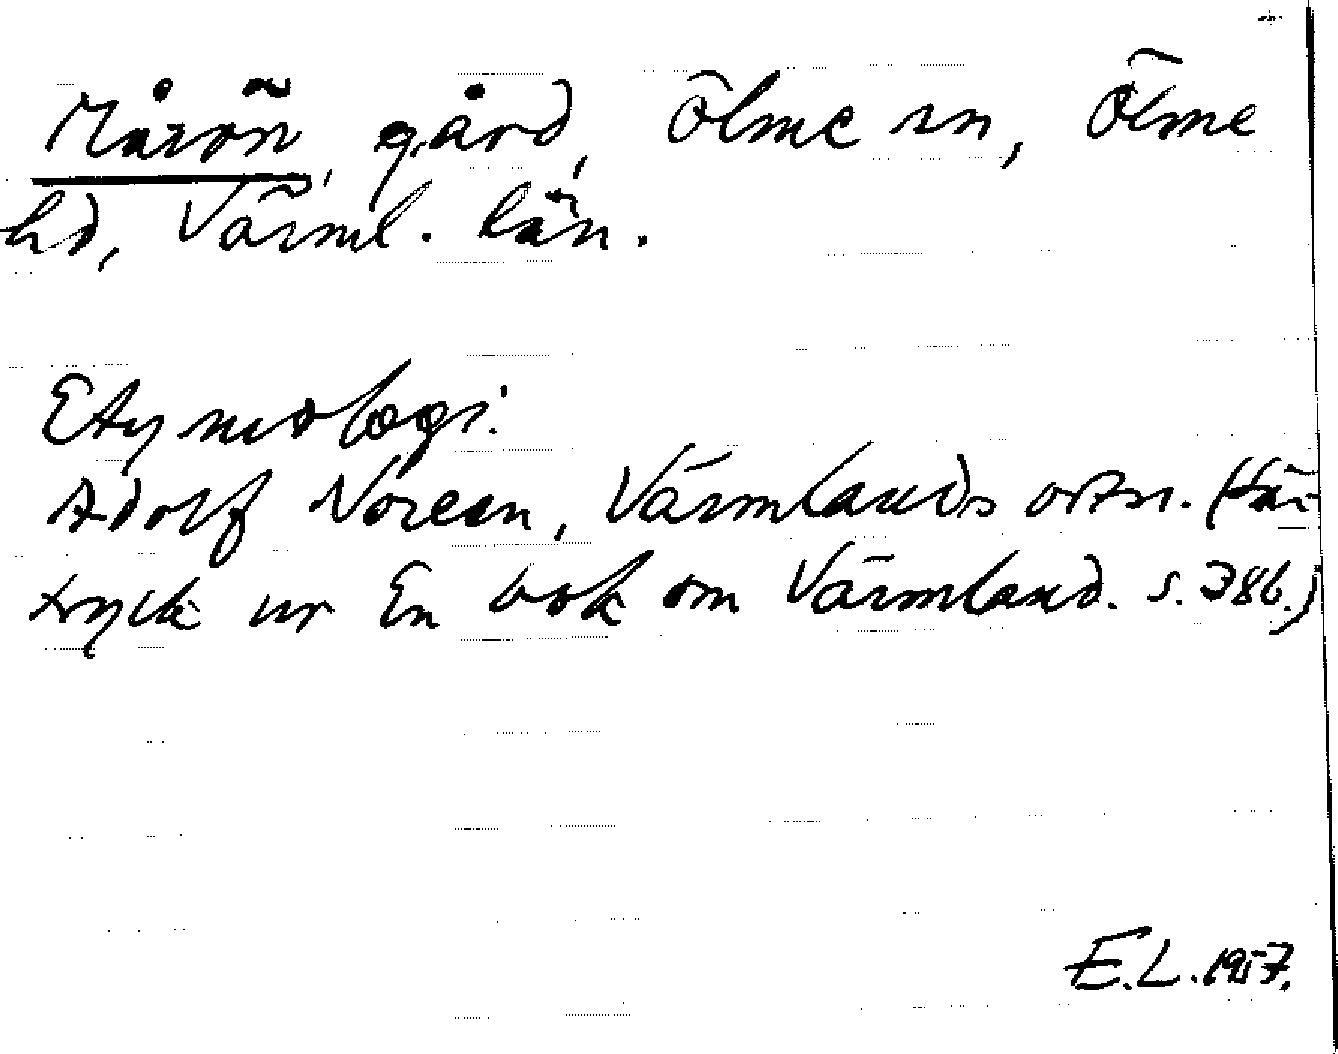 Måvön, gård, Ölme sn, Ölme
hd, Värml. län.
Etymologi:
Adolf Noreen, Värmlands ortn. (Sär-
tryck ur En bok om Värmland. s. 386.)
E.L. 1957.